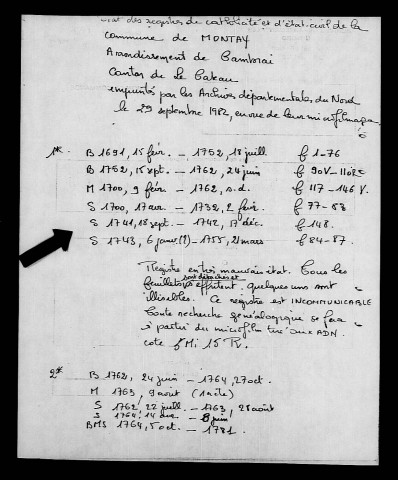 des registres de catholicité et d'état civil de la
Commune de MONTAY
Arrondissement de Cambrai
Canton de Le Cateau
empruntés par les Archives départementales du Nord
le 29 septembre 1982, en vue de leur microfilmage
1* B 1691, 15 févr. - 1752 18 juill f 1-76
B 1752, 15 sept. - 1762, 24 juin f 90V - 110
M 1700, 9 févr - 1762, s.d. f 117 - 146 V.
S 1700, 17 avr - 1732, 2 févr. f 77 - 83
S 1741, 18 sept - 1742, 17 déc. f 148.
S 1743, 6 janv (?) - 1755, 21 mars f 84 - 87.
Registre en très mauvais état. Tous les
sont détachés et
feuillets s'effritent. quelques uns sont
illisibles. Ce registre est INCOMMUNICABLE
Toute recherche généalogique se fera
à partir du microfilm tiré aux ADN.
cote 5Mi 15 R.
2* B 1762, 24 juin - 1764, 27 oct.
M 1763, 9 aout (1 acte)
S 1762, 22 juill - 1763, 28 aout
S 1764, 14 - 8 juin
BMS 1764, 5 oct. - 1781.